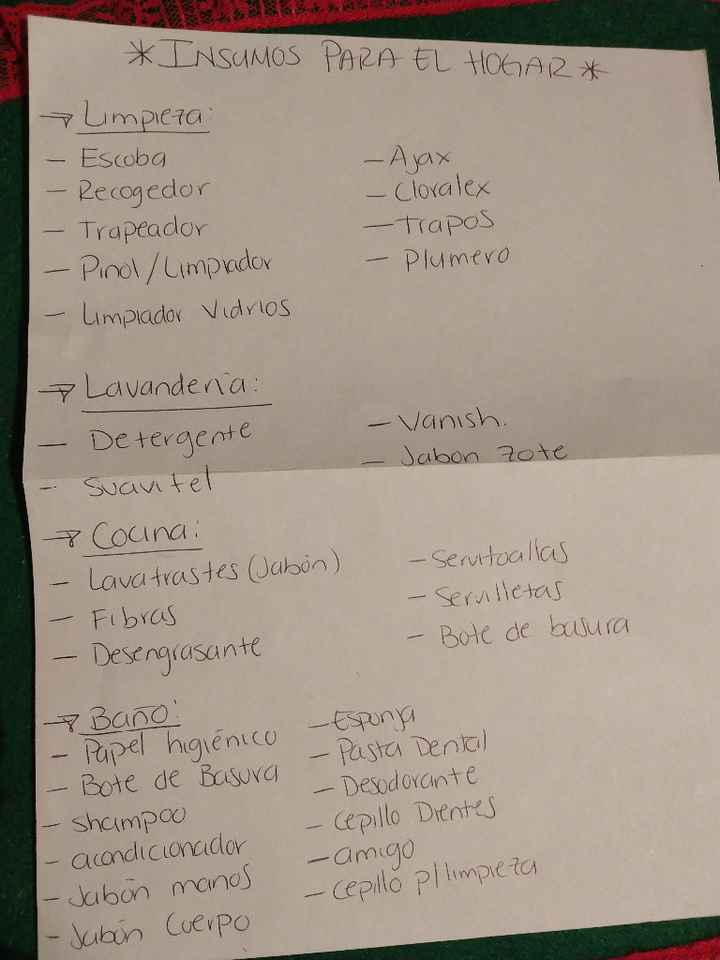 * INSUMOS PARA EL HOGAR *
→ Limpieza:
- Escoba
- Recogedor
- Trapeador
- Pinol / Limpiador
- Limpiador Vidrios
- Ajax
- Cloralex
- Trapos
- Plumero
→ Lavandería:
- Detergente
- Suavitel
- Vanish.
- Jabon Zote
→ Cocina:
- Lavatrastes (Jabón)
- Fibras
- Desengrasante
- Servitoallas
- Servilletas
- Bote de basura
→ Baño:
- Papel higiénico
- Bote de Basura
- Shampoo
- acondicionador
- Jabón manos
- Jabón Cuerpo
- Esponja
- Pasta Dental
- Desodorante
- Cepillo Dientes
- amigo
- Cepillo p/limpieza